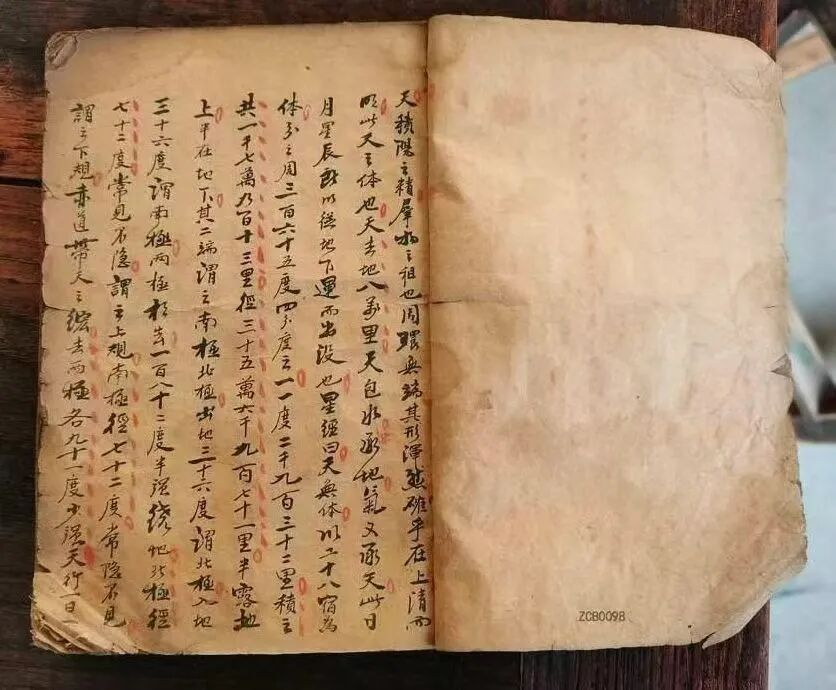 天積陽之精羣物之祖也周環無端其形渾然確乎在上清而
明此天之体也天去地八万里天包水承地氣又承天此日
月星辰所以從地下運而出没也星經曰天無体以二十八宿為
体分之周三百六十五度四分度之一一度二千九百三十二里積之
共一百七萬九百十三里徑三十五萬六千九百七十一里半露地
上半在地下其二端謂之南極北極出地三十六度謂北極入地
三十六度謂南極兩極相去一百八十二度半强繞地北極徑
七十二度常見不隐謂之上規南極徑七十二度常隐不見
謂之下規赤道帶天之絃去兩極各九十一度少强天行一日
ZCB0098